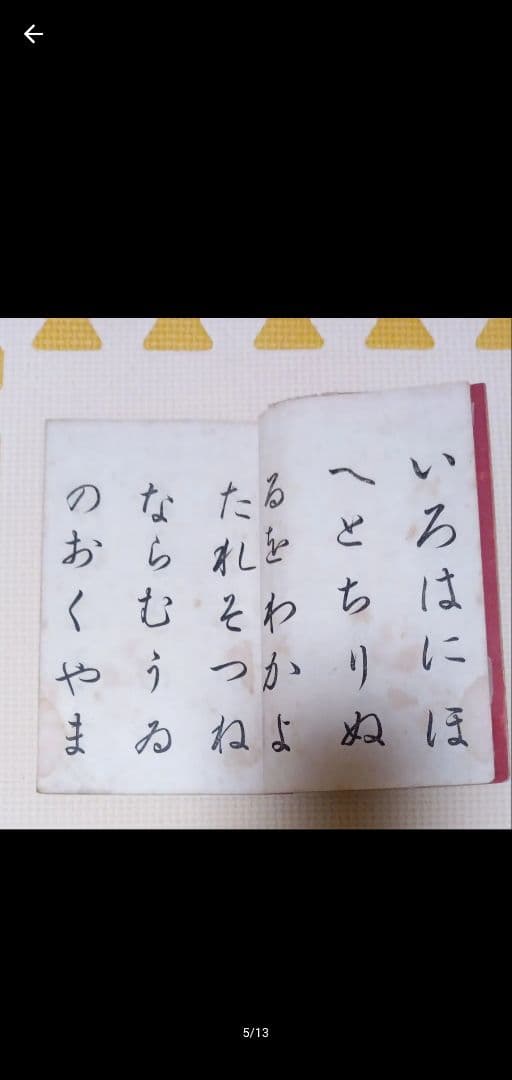 いろはにほ
へとちりぬ
るをわかよ
たれそつね
ならむうゐ
のおくやま
5/13